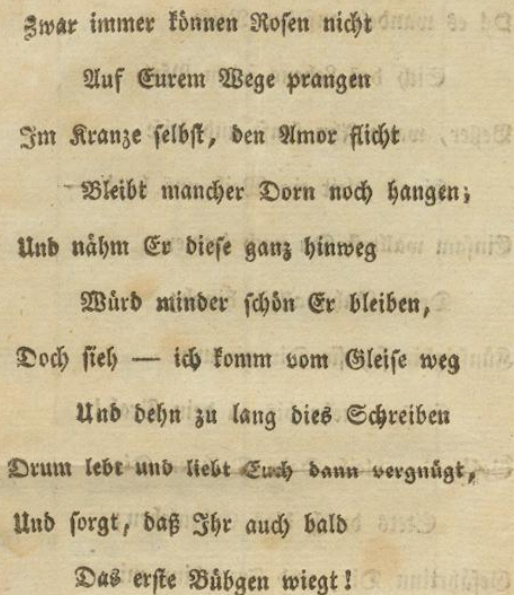 Zwar immer können Rosen nicht
Auf Eurem Wege prangen
Im Kranze selbst, den Amor flicht
Bleibt mancher Dorn noch hangen;
Und nähm Er diese ganz hinweg
Würd minder schön Er bleiben,
Doch sieh — ich komm vom Gleise weg
Und dehn zu lang dies Schreiben
Drum lebt und liebt Euch dann vergnügt,
Und sorgt, daß Ihr auch bald
Das erste Bübgen wiegt!